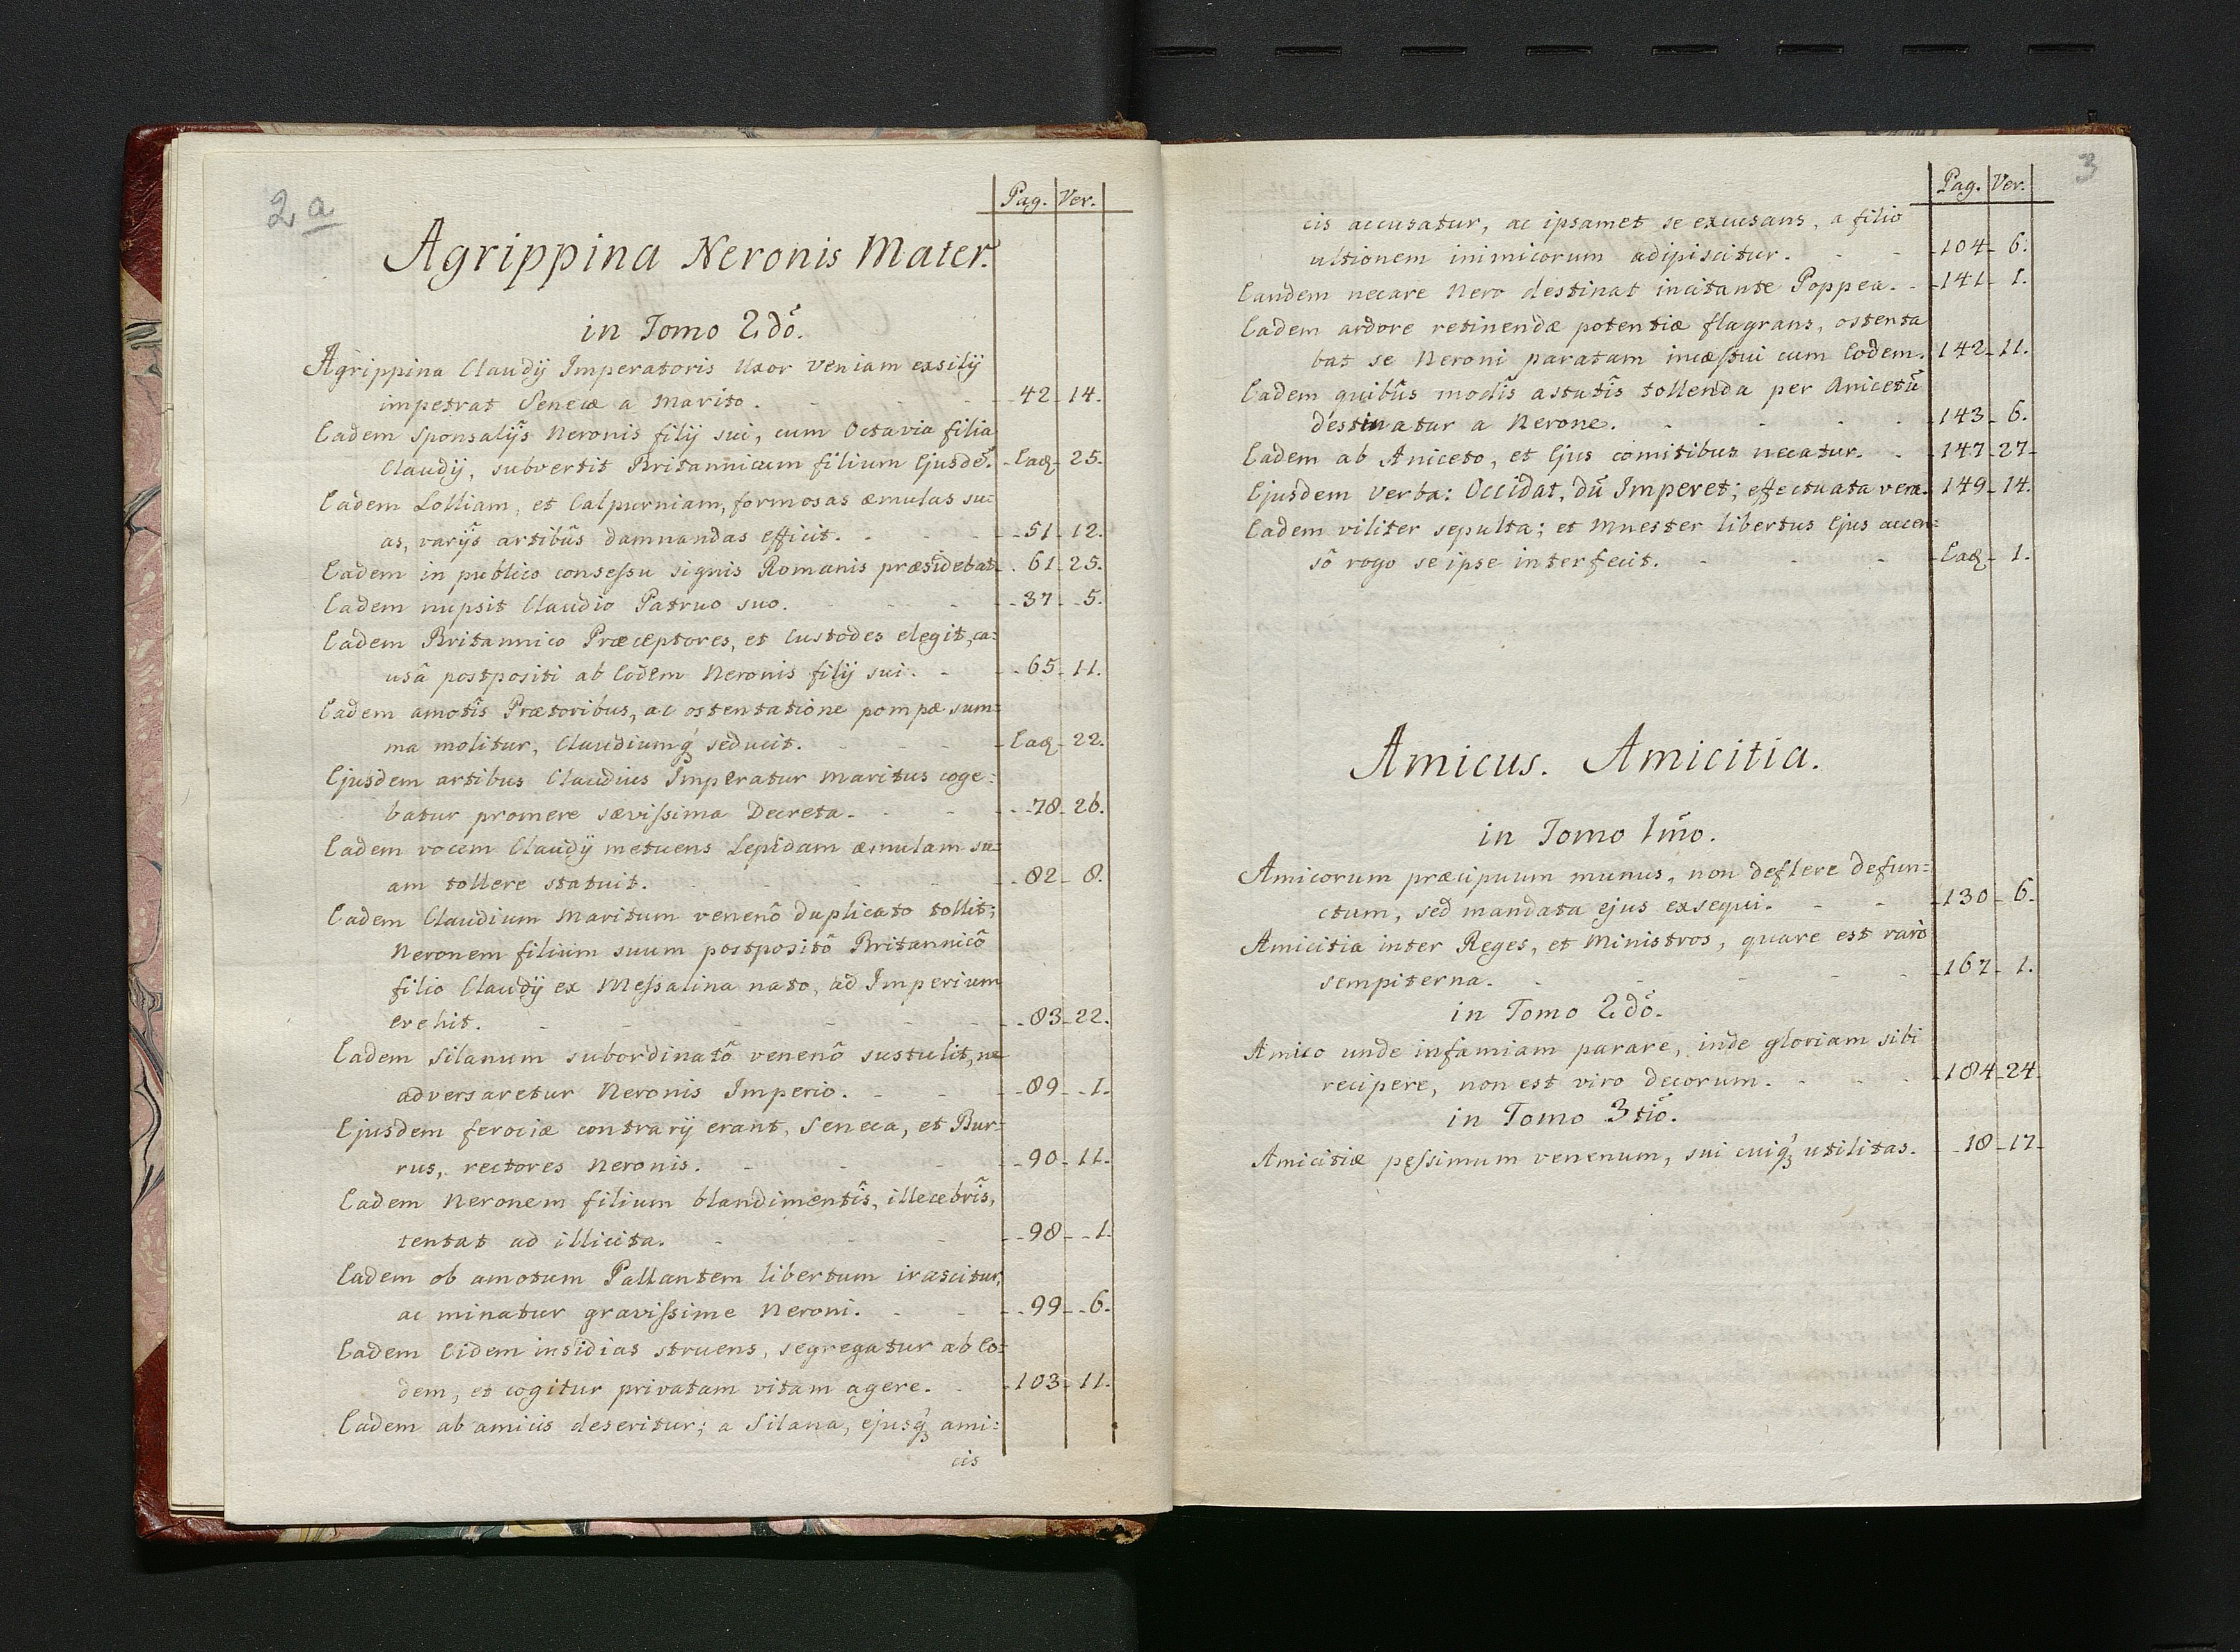 2a
Pag. Ver.
Agrippina Neronis Mater.
in Tomo 2dō.
Agrippina Claudij Imperatoris Uxor veniam exsilij
impetrat Senecæ a Marito. 42. 14.
Eadem Sponsalijs Neronis filij sui, cum Octavia filia
Claudij, subvertit Britannicum filium Ejusdē. Eaq 25.
Eadem Lolliam, et Calpurniam, formosas æmulas su=
as, varijs artibûs damnandas efficit. 51. 12.
Eadem in publico consessu signis Romanis præsidebat. 61. 25.
Eadem nupsit Claudio Patruo suo. 37. 5.
Eadem Britannico Præceptores, et Custodes elegit, ca=
usâ postpositi ab Eodem Neronis filij sui. 65. 11.
Eadem amotîs Prætoribus, ac ostentatione pompæ sum=
ma molitur, Claudiumq́ꝫ seducit. Eaq 22.
Ejusdem artibus Claudius Imperatur Maritus coge=
batur promere sævissima Decreta. 78. 26.
Eadem vocem Claudij metuens Lepidam æmulam su=
am tollere statuit. 82. 8.
Eadem Claudium Maritum venenô duplicato tollit;
Neronem filium suum postpositô Britannicô
filio Claudij ex Messalina nato, ad Imperium
evehit. 83. 22.
Eadem Silanum subordinatô venenô sustulit, ne
adversaretur Neronis Imperio. 89. 1.
Ejusdem ferociæ contrarij erant, Seneca, et Bur=
rus, rectores Neronis. 90. 11.
Eadem Neronem filium blandimentîs, illecebrîs,
tentat ad illicita. 98. 1.
Eadem ob amotum Pallantem libertum irascitur,
ac minatur gravissime Neroni. 99. 6.
Eadem Eidem insidias struens, segregatur ab Eo=
dem, et cogitur privatam vitam agere. 103. 11.
Eadem ab amicis deseritur; a Silana, ejusq́ꝫ ami=
cis
3
Pag. Ver.
cis accusatur, ac ipsamet se excusans, a filio
ultionem inimicorum adipiscitur. 104. 6.
Eandem necare Nero destinat incitante Poppea. 141. 1.
Eadem ardore retinendæ potentiæ flagrans, ostenta
bat se Neroni paratam incæstui cum Eodem. 142. 11.
Eadem quibûs modîs astutîs tollenda per Anicetū
destinatur a Nerone. 143. 6.
Eadem ab Aniceto, et Ejus comitibus necatur. 147. 27.
Ejusdem verba: Occidat, dū Imperet; effectuata vera. 149. 14.
Eadem viliter sepulta; et Mnester libertus Ejus accen=
sô rogo se ipse interfecit. Eaq 1.
Amicus. Amicitia.
in Tomo 1mō.
Amicorum præcipuum munus, non deflere defun=
ctum, sed mandata ejus exsequi. 130. 6.
Amicitia inter Reges, et Ministros, quare est rarò
sempiterna. 167. 1.
in Tomo 2dō.
Amico unde infamiam parare, inde gloriam sibi
recipere, non est viro decorum. 184. 24.
in Tomo 3tiō.
Amicitiæ pessimum venenum, sui cuiq́ꝫ utilitas. 18. 17.